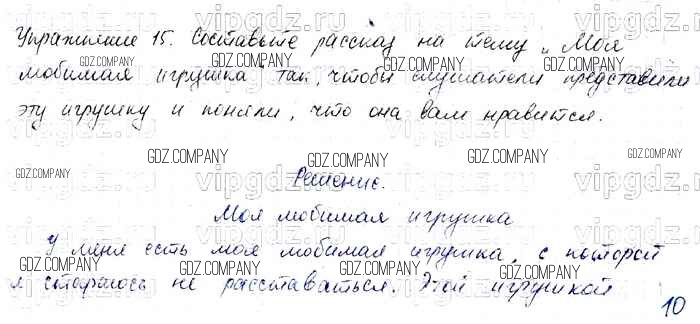 Упражнение 15. Составьте рассказ на тему „Моя
любимая игрушка так, чтобы слушатели представили
эту игрушку и поняли, что она вам нравится.
Решение.
Моя любимая игрушка
У меня есть моя любимая игрушка, с которой
я стараюсь не расставаться. Этой игрушкой
10
vipgdz.ru
GDZ.COMPANY